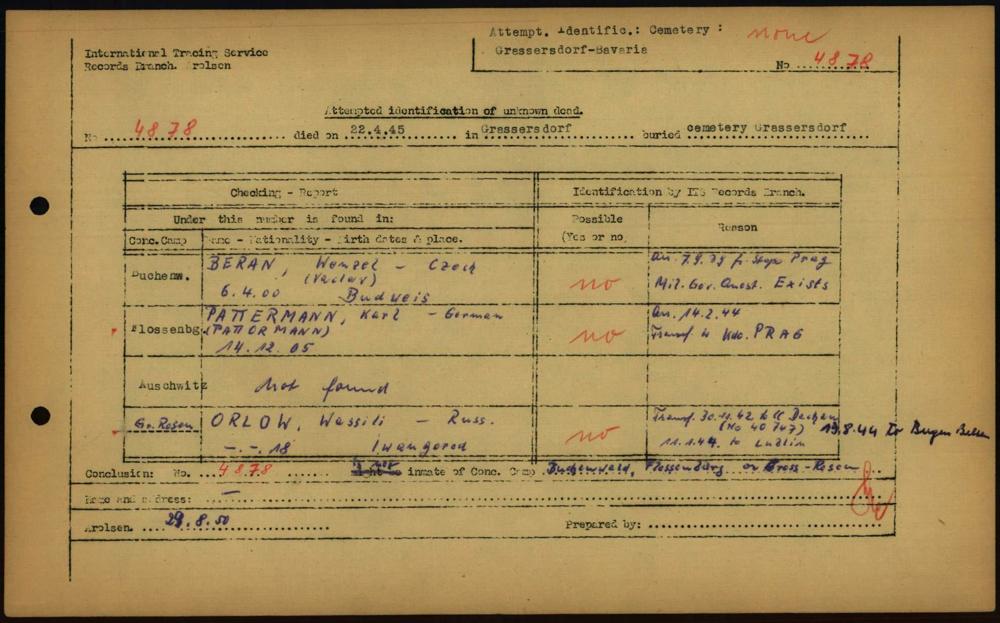 Attempt. Identific.: Cemetery: none
Grassersdorf-Bavaria
No 4878
International Tracing Service
Records Branch. Arolsen
Attempted identification of unknown dead.
No 4878 died on 22.4.45 in Grassersdorf buried cemetery Grassersdorf
Checking - Report
Identification by ITS Records Branch.
Under this number is found in:
Possible (Yes or no)
Reason
Conc.Camp
Name - Nationality - Birth dates & place.
Buchenw.
BERAN, Wenzel - Czech
(Vaclav)
6.4.00 Budweis
no
Mil. Gov. Quest. Exists
Flossenbg.
PATTERMANN, Karl - German
(PATTORMANN)
14.12.05
no
14.2.44
Transf. to Kdo. PRAG
Auschwitz
Not found
Gr. Rosen
ORLOW, Wassili - Russ.
-.-.18 Iwangorod
no
Transf. 30.11.42 to Dachau
(No 40747)
11.1.44. to Lublin
19.8.44 to Bergen Belsen
Conclusion: No. 4878 is not inmate of Conc. Camp Buchenwald, Flossenburg or Gross-Rosen
Name and address: -
Arolsen. 29.8.50
Prepared by: